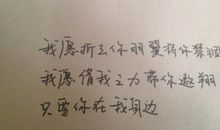 我愿折去你羽翼将你禁锢
我愿借我之力带你遨翔
只要你在我身边